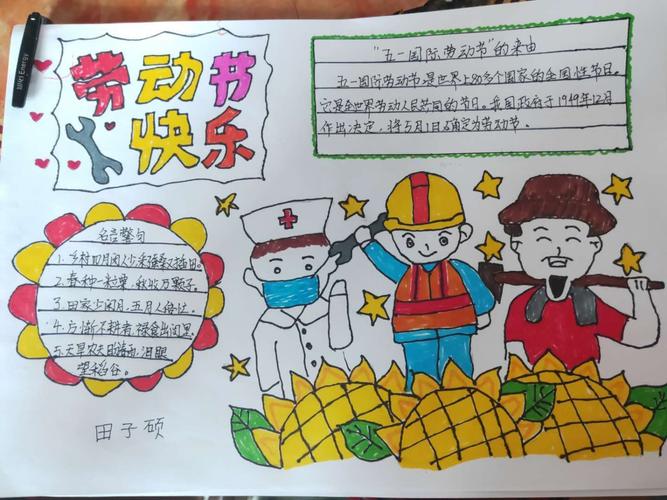 劳动节
快乐
"五一国际劳动节"的来由
五一国际劳动节是世界上80多个国家的全国性节日。
它是全世界劳动人民共同的节日。我国政府于1949年12月
作出决定，将5月1日确定为劳动节。
名言警句
1.乡村四月闲人少采了蚕桑又插田。
2.春种一粒粟，秋收万颗子。
3.田家少闲月，五月人倍忙。
4.方惭不耕者，禄食出闾里
5.天旱农夫日
望稻谷。
田子硕
Energy